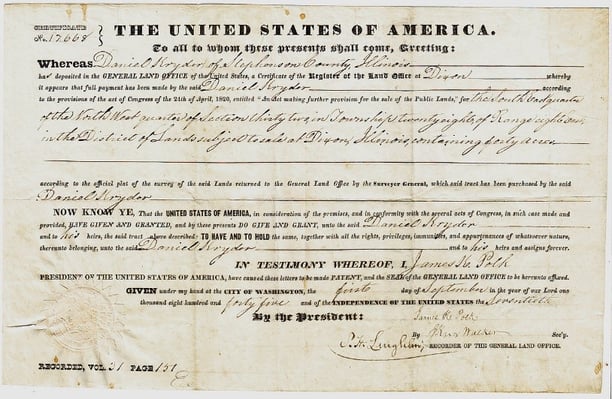 CERTIFICATE
No. 17,668
THE UNITED STATES OF AMERICA.
To all to whom these presents shall come, Greeting:
Whereas Daniel Kryder of Stephenson County, Illinois
has deposited in the GENERAL LAND OFFICE of the United States, a Certificate of the Register of the Land Office at Dixon whereby
it appears that full payment has been made by the said Daniel Kryder according
to the provisions of the act of Congress of the 24th of April, 1820, entitled "An act making further provision for the sale of the Public Lands," for the South East quarter
of the North West quarter of Section thirty two, in Township twenty eight, of Range eight East
in the District of Lands subject to sale at Dixon, Illinois, containing forty acres
according to the official plat of the survey of the said Lands returned to the General Land Office by the Surveyor General, which said tract has been purchased by the said
Daniel Kryder
NOW KNOW YE, That the UNITED STATES OF AMERICA, in consideration of the premises, and in conformity with the several acts of Congress, in such case made and
provided, HAVE GIVEN AND GRANTED, and by these presents DO GIVE AND GRANT, unto the said Daniel Kryder
and to his heirs, the said tract above described: TO HAVE AND TO HOLD the same, together with all the rights, privileges, immunities, and appurtenances of whatsoever nature,
thereunto belonging, unto the said Daniel Kryder and to his heirs and assigns forever.
IN TESTIMONY WHEREOF, I, James K. Polk
PRESIDENT OF THE UNITED STATES OF AMERICA, have caused these letters to be made PATENT, and the SEAL of the GENERAL LAND OFFICE to be hereunto affixed.
GIVEN under my hand at the CITY OF WASHINGTON, the first day of September in the year of our Lord one
thousand eight hundred and forty five and of the INDEPENDENCE OF THE UNITED STATES the Seventieth
By the President: James K. Polk
By Walker Sec'y.
RECORDER OF THE GENERAL LAND OFFICE.
RECORDED, VOL. 31 PAGE 151